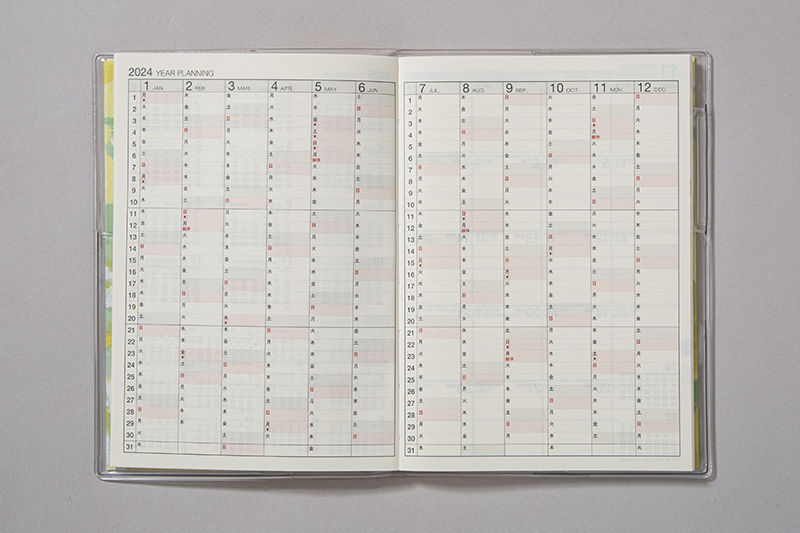 2024 YEAR PLANNING
1 JAN. 2 FEB. 3 MAR. 4 APR. 5 MAY. 6 JUN.
1 月 木 金 月 水 土
2 火 金 土 火 木 日
3 水 土 日 水 金 月
4 木 日 月 木 土 火
5 金 月 火 金 日 水
6 土 火 水 土 月 振休 木
7 日 水 木 日 火 金
8 月 木 金 月 水 土
9 火 金 土 火 木 日
10 水 土 日 水 金 月
11 木 日 月 木 土 火
12 金 月 振休 火 金 日 水
13 土 火 水 土 月 木
14 日 水 木 日 火 金
15 月 木 金 月 水 土
16 火 金 土 火 木 日
17 水 土 日 水 金 月
18 木 日 月 木 土 火
19 金 月 火 金 日 水
20 土 火 水 土 月 木
21 日 水 木 日 火 金
22 月 木 金 月 水 土
23 火 金 土 火 木 日
24 水 土 日 水 金 月
25 木 日 月 木 土 火
26 金 月 火 金 日 水
27 土 火 水 土 月 木
28 日 水 木 日 火 金
29 月 木 金 月 水 土
30 火 土 火 木 日
31 水 日 金
7 JUL. 8 AUG. 9 SEP. 10 OCT. 11 NOV. 12 DEC.
1 月 木 日 火 金 日
2 火 金 月 水 土 月
3 水 土 火 木 日 火
4 木 日 水 金 月 振休 水
5 金 月 木 土 火 木
6 土 火 金 日 水 金
7 日 水 土 月 木 土
8 月 木 日 火 金 日
9 火 金 月 水 土 月
10 水 土 火 木 日 火
11 木 日 水 金 月 水
12 金 月 振休 木 土 火 木
13 土 火 金 日 水 金
14 日 水 土 月 木 土
15 月 木 日 火 金 日
16 火 金 月 水 土 月
17 水 土 火 木 日 火
18 木 日 水 金 月 水
19 金 月 木 土 火 木
20 土 火 金 日 水 金
21 日 水 土 月 木 土
22 月 木 日 火 金 日
23 火 金 月 振休 水 土 月
24 水 土 火 木 日 火
25 木 日 水 金 月 水
26 金 月 木 土 火 木
27 土 火 金 日 水 金
28 日 水 土 月 木 土
29 月 木 日 火 金 日
30 火 金 月 水 土 月
31 水 土 木 火